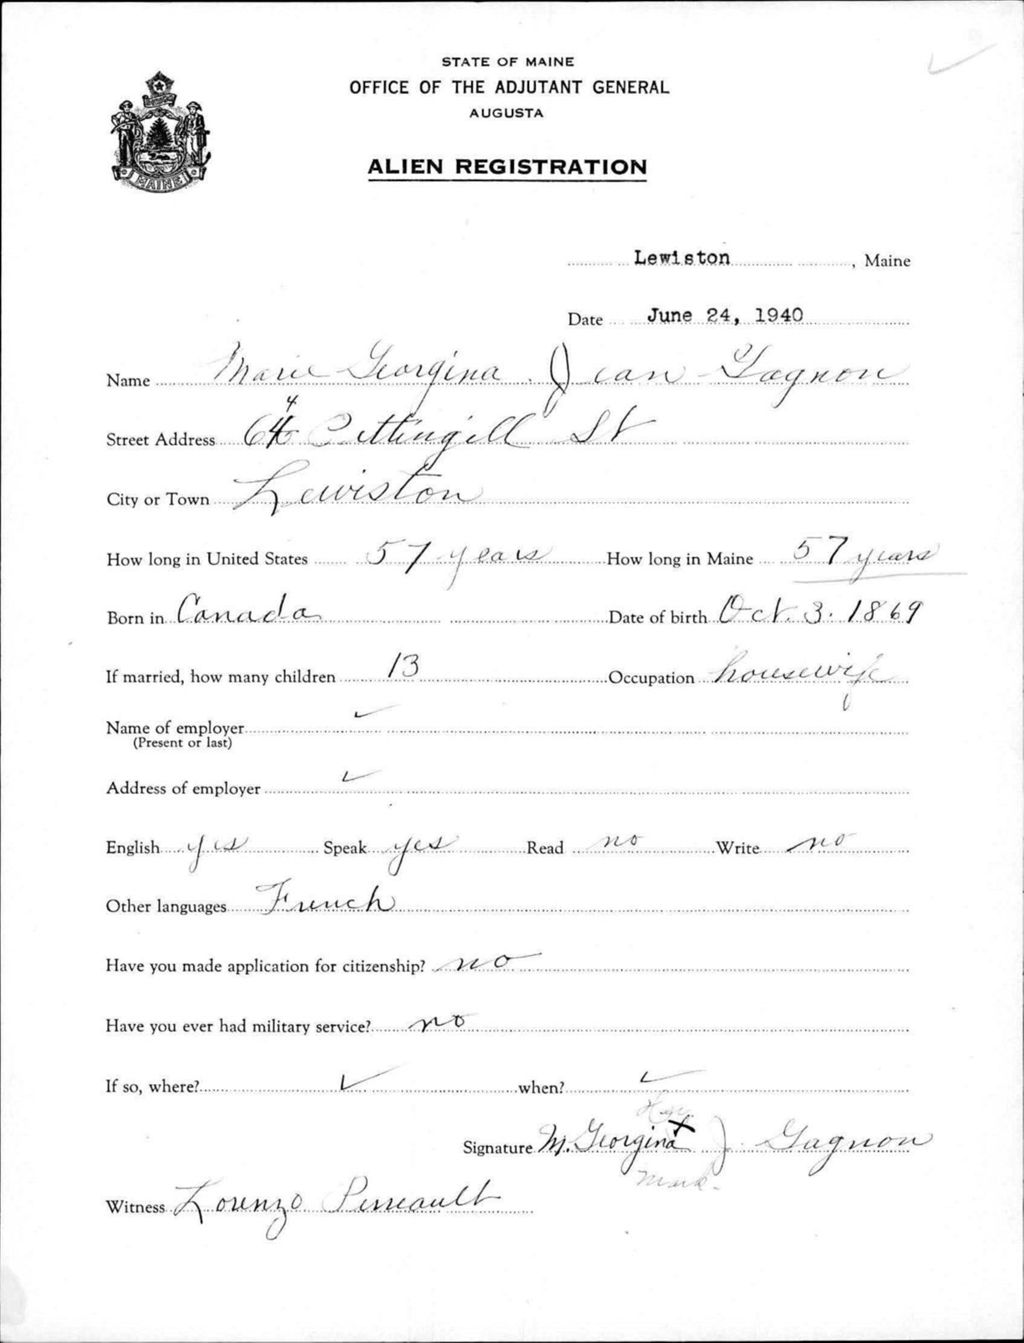 STATE OF MAINE
OFFICE OF THE ADJUTANT GENERAL
AUGUSTA
MAINE
ALIEN REGISTRATION
Lewiston, Maine
Date June 24, 1940
Name Marie Georgina Jean Gagnon
Street Address 64 Pettingill St
City or Town Lewiston
How long in United States 57 years How long in Maine 57 years
Born in Canada Date of birth Oct. 3. 1869
If married, how many children 13 Occupation housewife
Name of employer
(Present or last)
Address of employer
English yes Speak yes Read no Write no
Other languages French
Have you made application for citizenship? no
Have you ever had military service? no
If so, where? when?
Her
Signature M. Georgina X J Gagnon
Mark
Witness Lorenzo Perreault